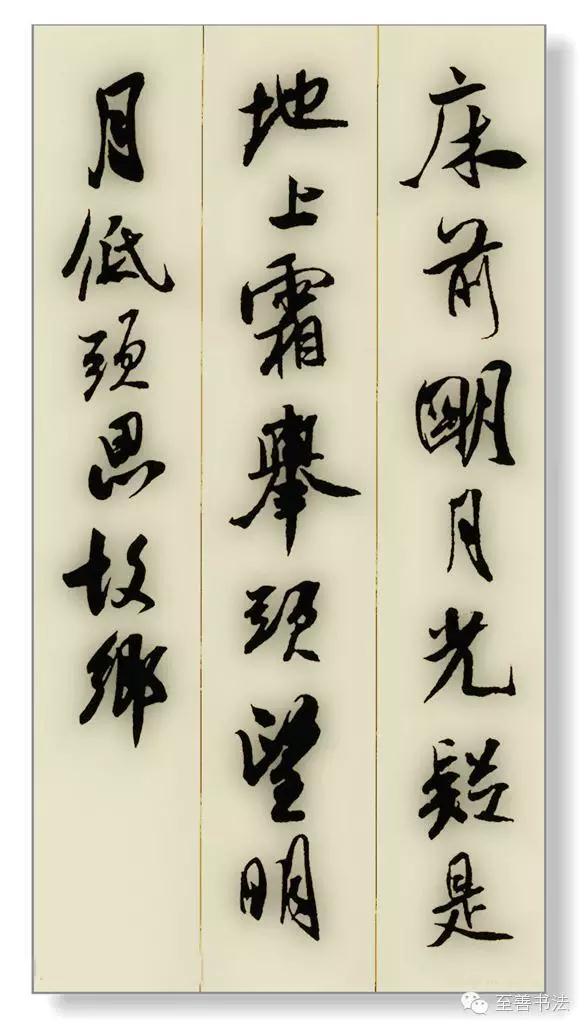 床前明月光疑是
地上霜舉頭望明
月低頭思故鄉
至善书法